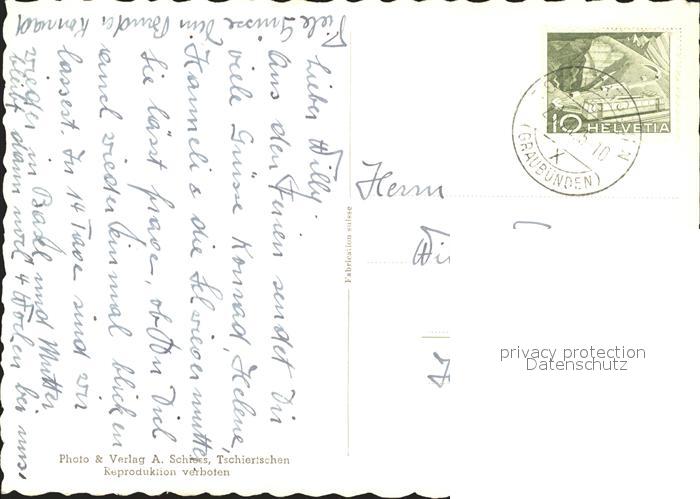 Lieber Willy!
Aus den Ferien sendet Dir
viele Grüsse Konrad, Helene,
Hanneli & die Schwiegermutter
Sie lässt fragen, ob Du Dich
auch wieder einmal blicken
lassest. In 14 Tage sind wir
wieder in Basel und Mutter
bleibt dann noch 4 Wochen bei uns.
Viele Grüsse Dein Bruder Konrad
10 HELVETIA
(GRAUBÜNDEN)
Herrn
Wi
Fabrication suisse
privacy protection
Datenschutz
Photo & Verlag A. Schiess, Tschiertschen
Reproduktion verboten